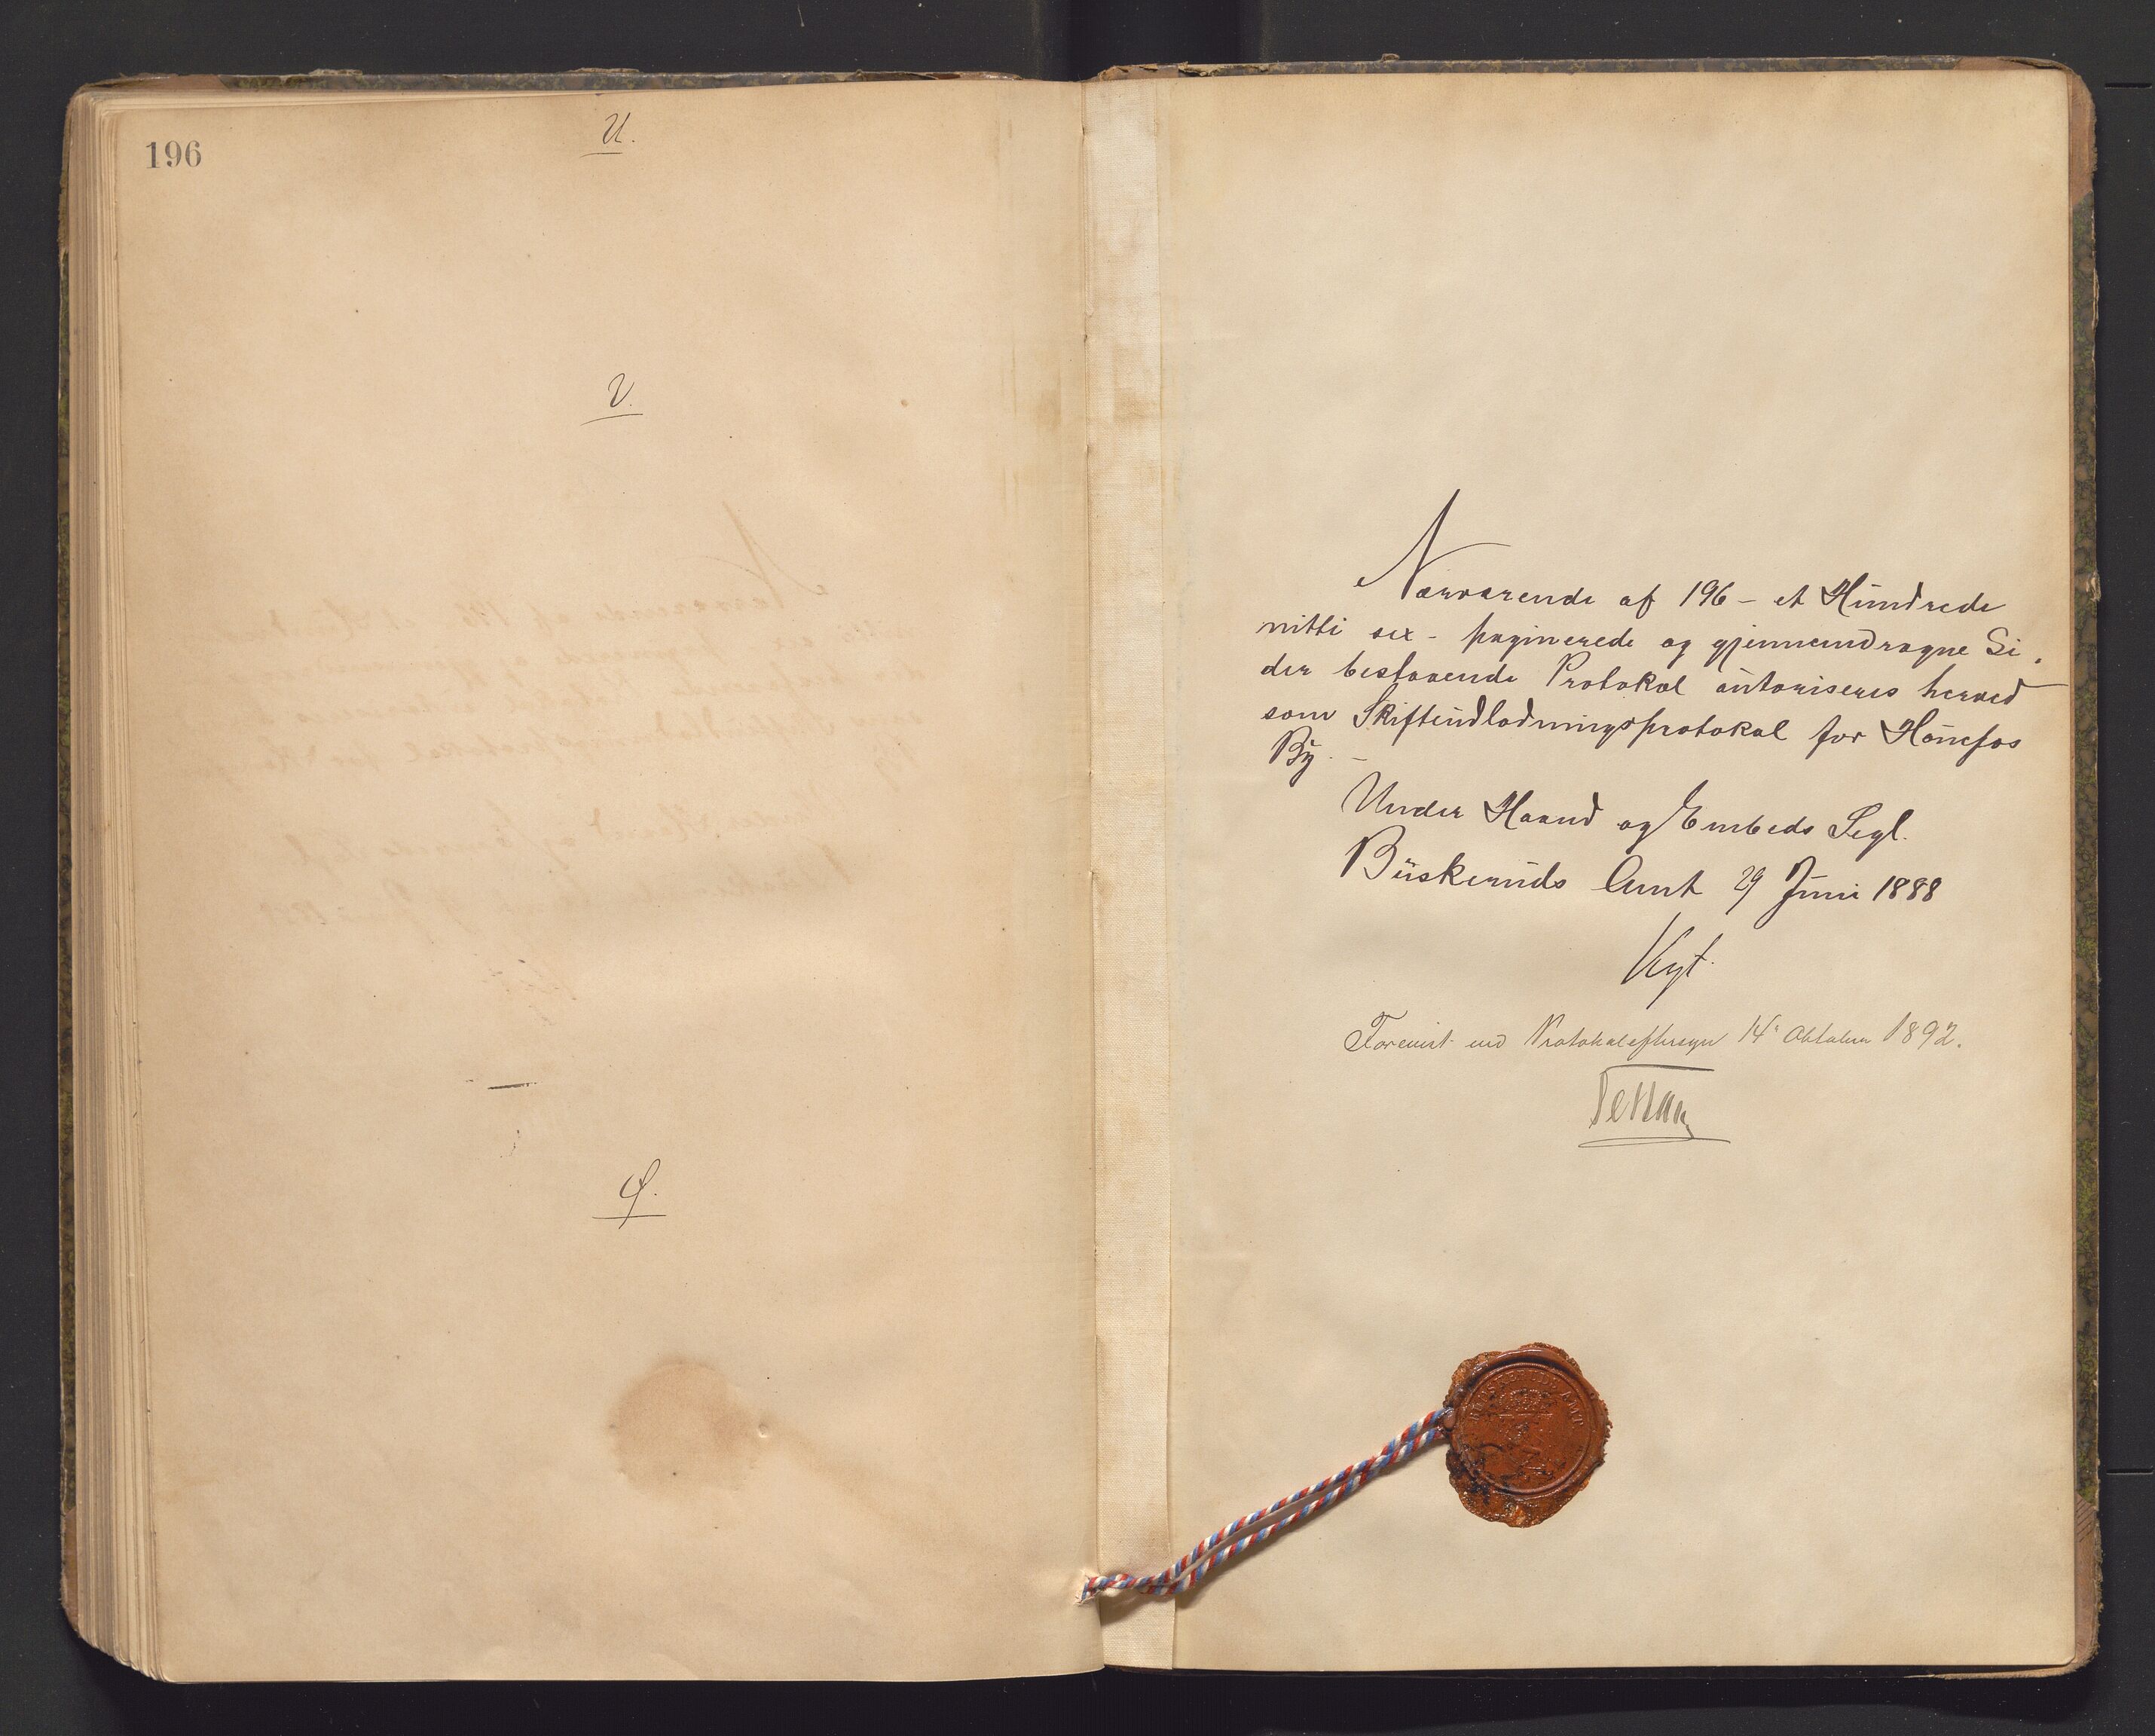 196
U.
V.
Ø.
Nærværende af 196 – et Hundrede
nitti sex – paginerede og gjennemdragne Si-
der bestaaende Protokol autoriseres herved
som Skifteudlodningsprotokol for Hønefos
By. –
Under Haand og Embeds Segl.
Buskeruds Amt 29 Juni 1888
Forevist ved Protokoleftersyn 14de Oktober 1892.
BUSKERUDS AMT